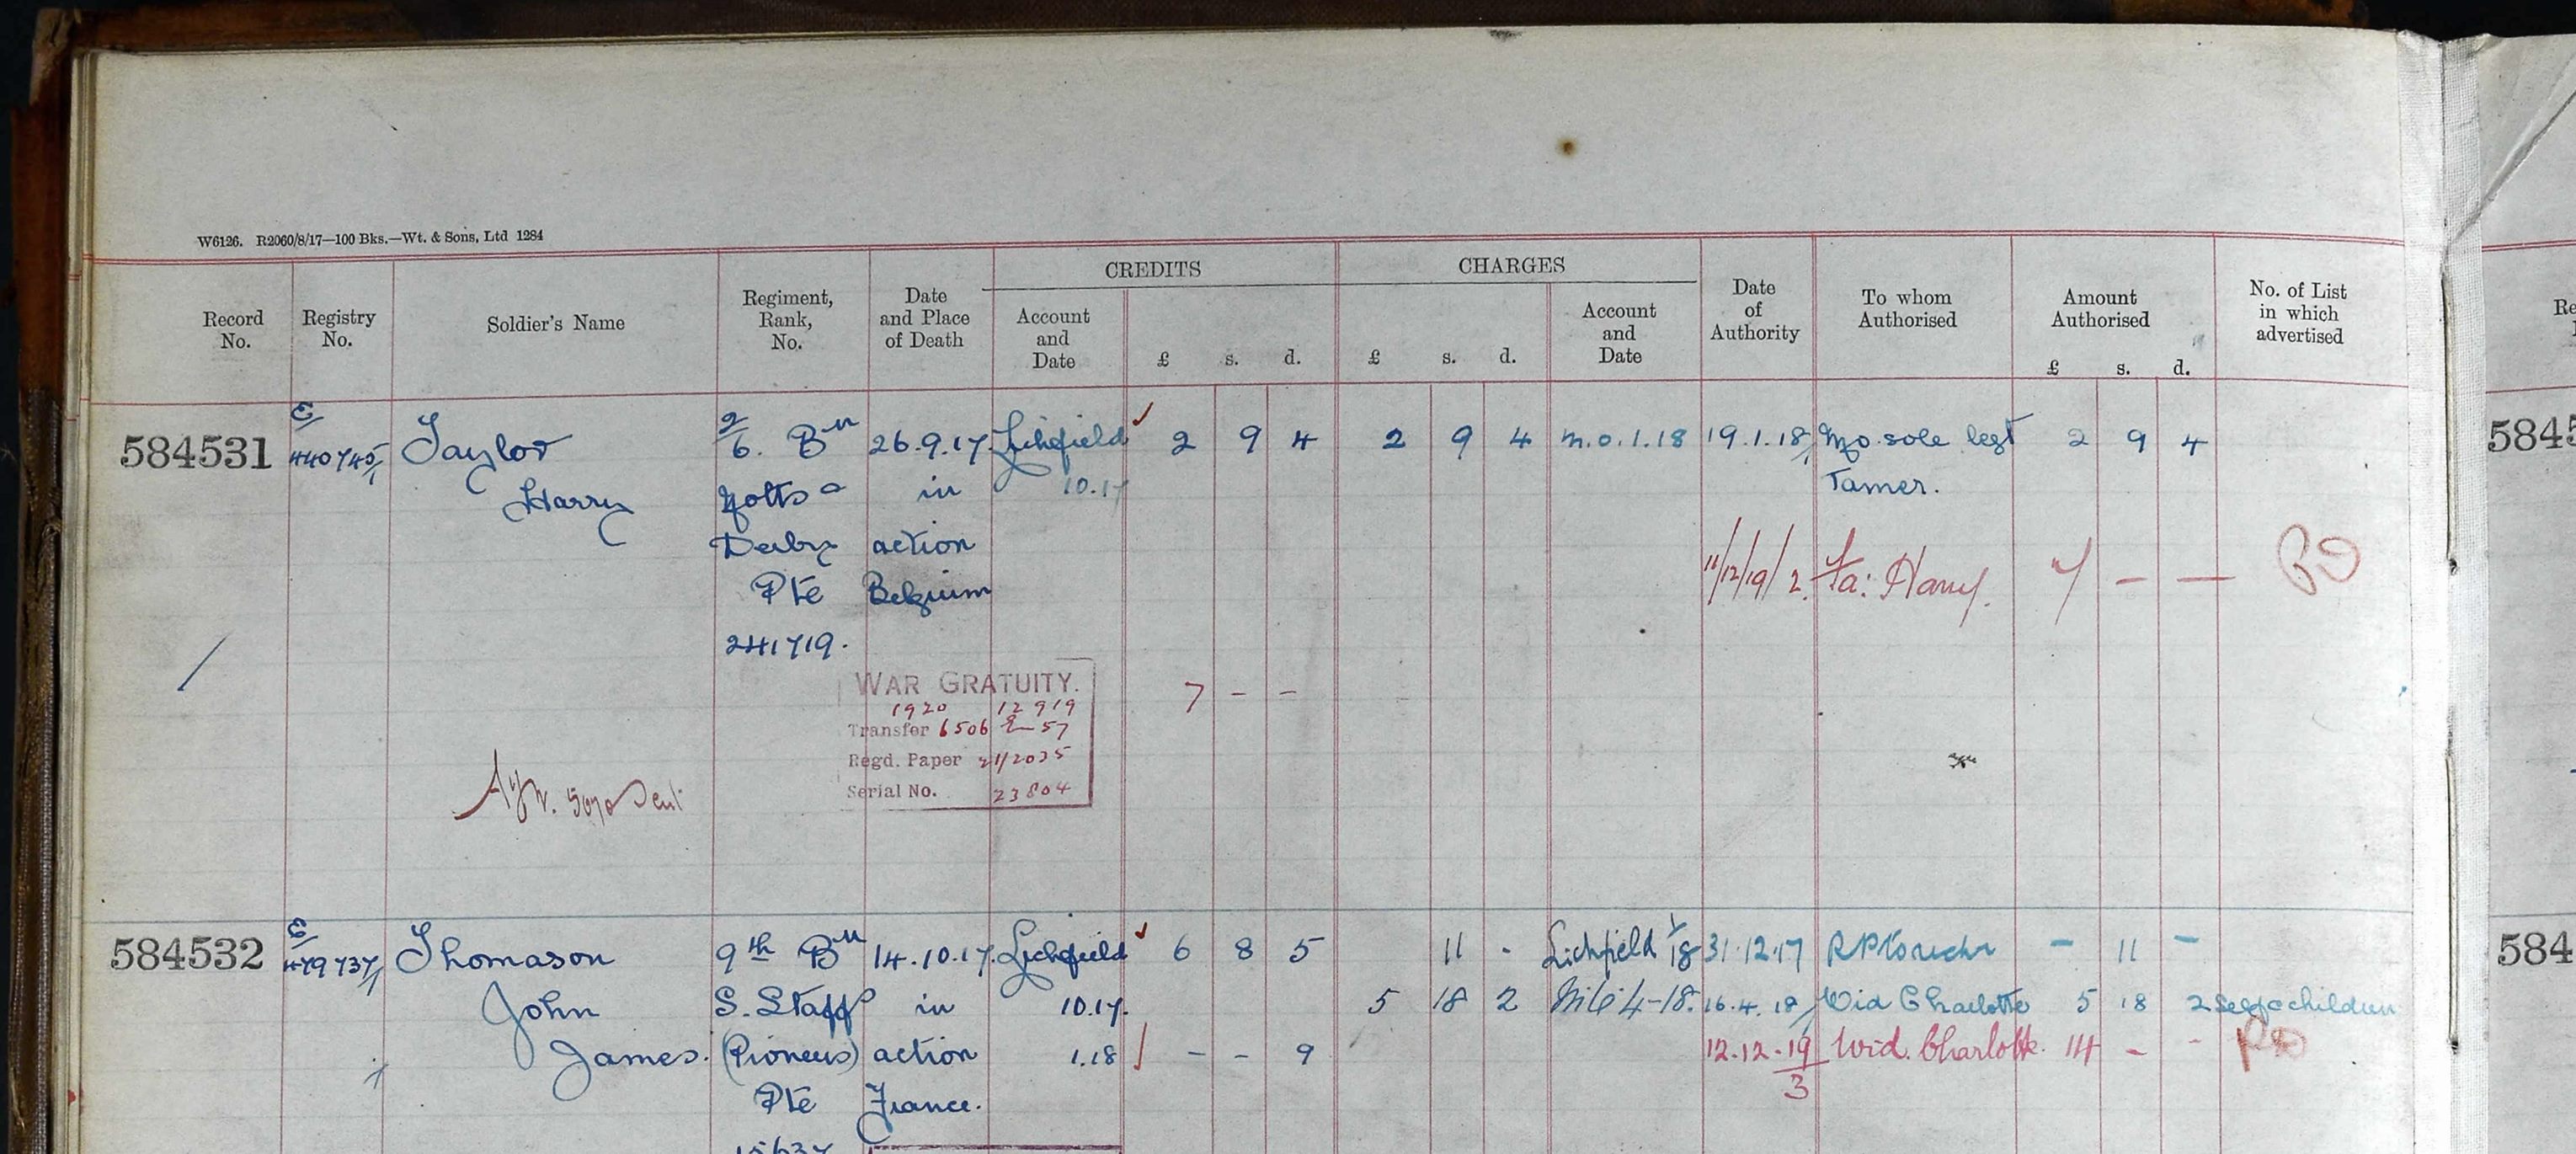 W6126. R2060/8/17—100 Bks.—Wt. & Sons, Ltd 1284
CREDITS CHARGES
Record No.
Registry No.
Soldier's Name
Regiment, Rank, No.
Date and Place of Death
Account and Date
£ s. d.
£ s. d.
Account and Date
Date of Authority
To whom Authorised
Amount Authorised
£ s. d.
No. of List in which advertised
584531 E/ 440745/1 Taylor 2/6. Bn 26.9.17. Lichfield 2 9 4 2 9 4 M.O. 1.18 19.1.18 Mo. sole legt 2 9 4
Harry Notts & in 10.17 Tamer.
Derby action
Pte Belgium 11/12/19/2. Fa: Harry. 7 — —
241719.
WAR GRATUITY. 7 - -
1920 12919
Transfer 6506 57
Regd. Paper 21/2035
Serial No. 23804
584532 E/ 479737/1 Thomason 9th Bn 14.10.17. Lichfield 6 8 5 11 - Lichfield 1/18 31.12.17 - 11 -
John S. Staff in 10.17. 5 18 2 4-18. 16.4.18 Wid Charlotte 5 18 2 self & children
James. (Pioneers) action 1.18 - - 9 12.12.19/3 Wid. Charlotte. 14 - -
Pte France.
15637
5845
584